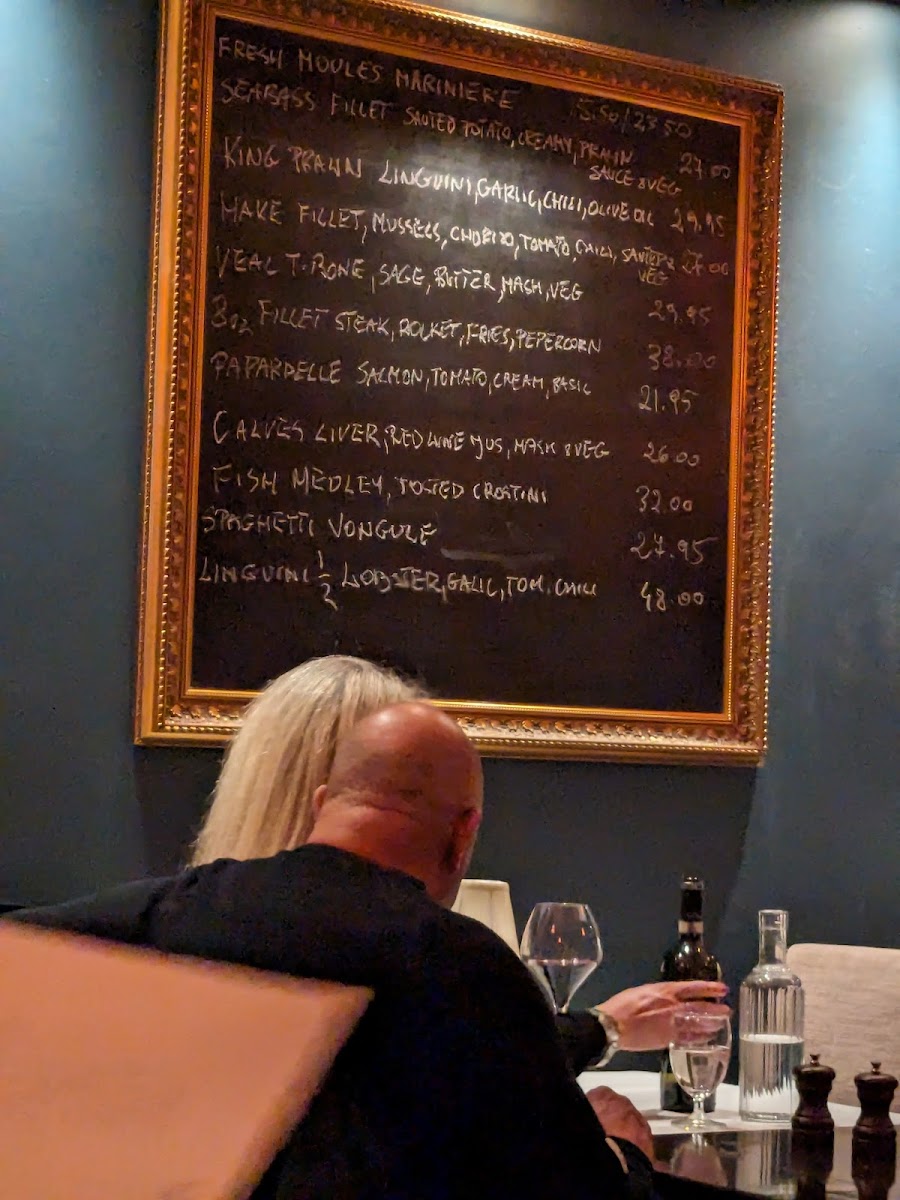 FRESH MOULES MARINIERE 15.50/23.50
SEABASS FILLET SAUTED POTATO, CREAMY, PRAWN 27.00
SAUCE & VEG
KING PRAWN LINGUINI, GARLIC, CHILI, OLIVE OIL 29.95
HAKE FILLET, MUSSELS, CHORIZO, TOMATO, CHILI, 27.00
VEG
VEAL T-BONE, SAGE, BUTTER, MASH, VEG 29.95
8oz FILLET STEAK, ROCKET, FRIES, PEPERCORN 38.00
PAPARDELLE SALMON, TOMATO, CREAM, BASIL 21.95
CALVES LIVER, RED WINE JUS, MASH & VEG 26.00
FISH MEDLEY, TOSTED CROSTINI 32.00
SPAGHETTI VONGULE 27.95
LINGUINI 1/2 LOBSTER, GALIC, TOM. CHILI 48.00